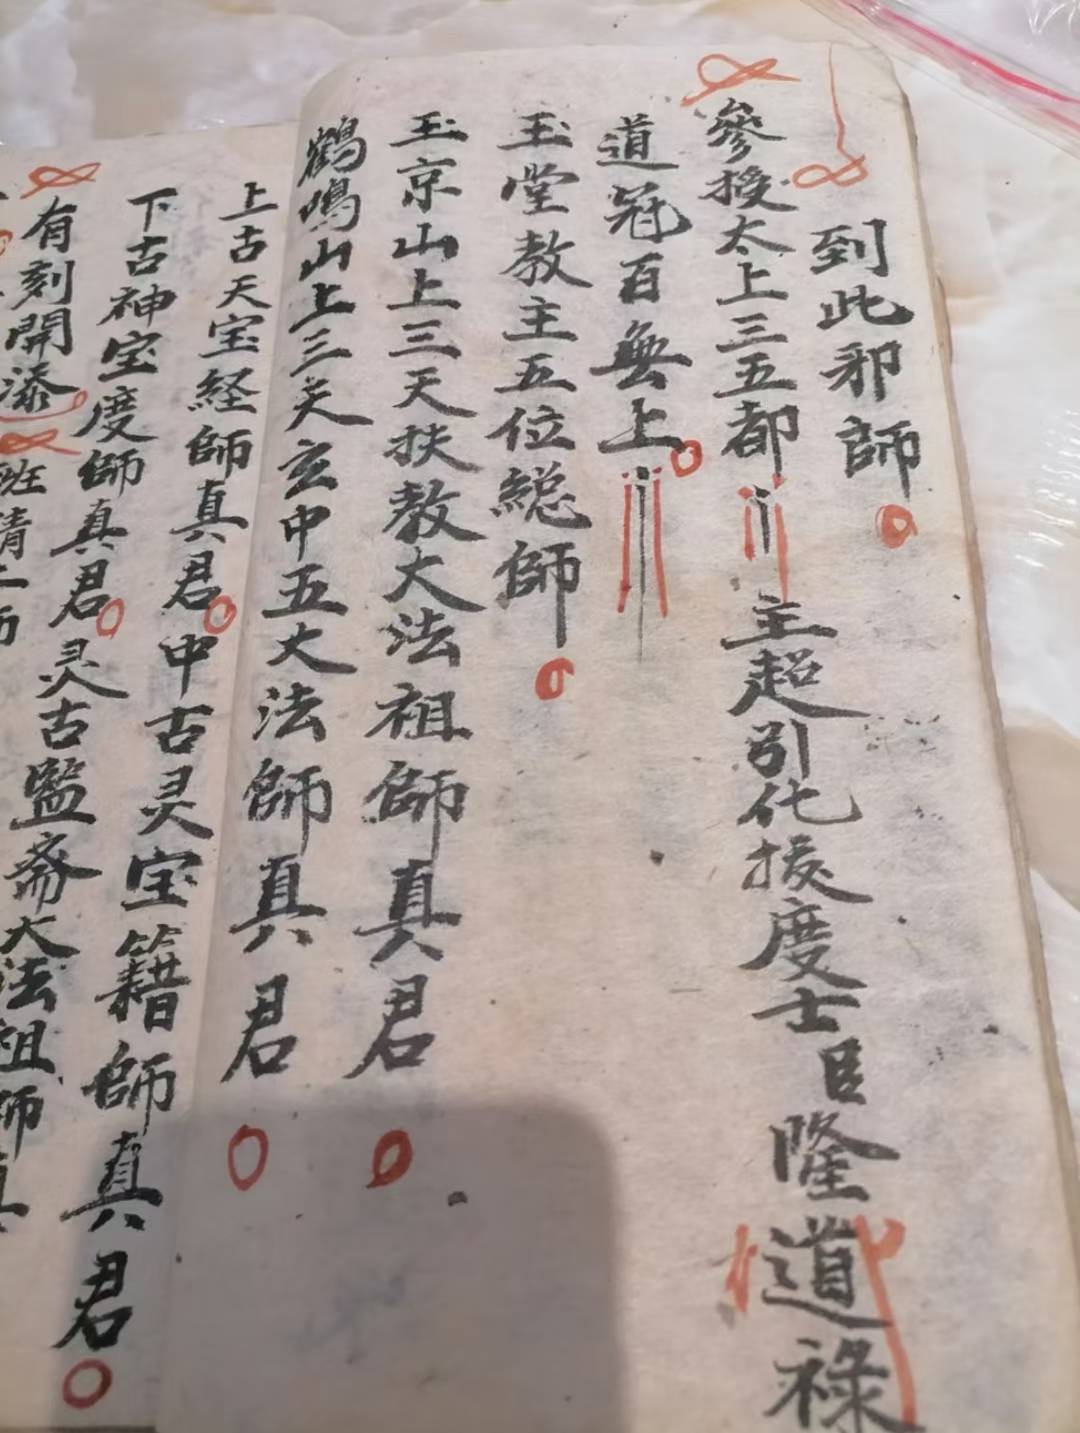 到此邪師
參授太上三五都 主超引化拔度士臣隆道祿
道冠百無上
玉堂教主五位総師
玉京山上三天扶教大法祖師真君
鶴鳴山上三天玄中五大法師真君
上古天宝経師真君中古灵宝籍師真君
下古神宝度師真君灵古監斎大法祖師真
有刻開添
班清